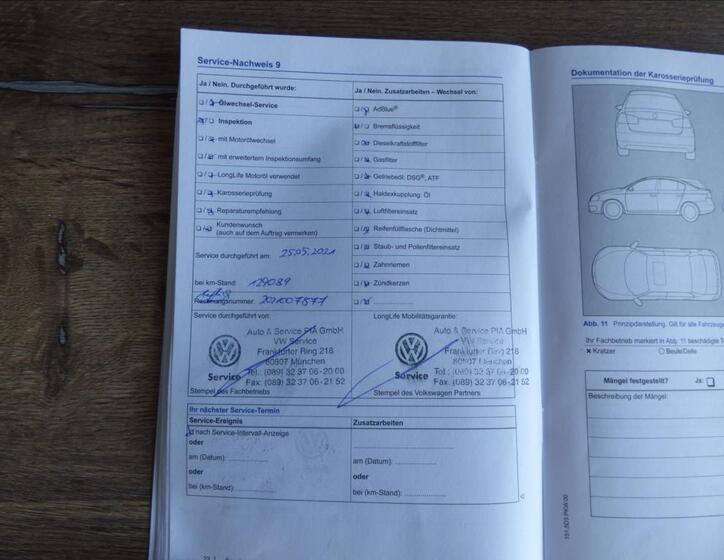 Service-Nachweis 9
Ja / Nein. Durchgeführt wurde:
Ölwechsel-Service
Inspektion
mit Motorölwechsel
mit erweitertem Inspektionsumfang
LongLife Motoröl verwendet
Karosserieprüfung
Reparaturempfehlung
Kundenwunsch
(auch auf dem Auftrag vermerken)
Service durchgeführt am: 25.05.2021
bei km-Stand: 129089
Rechnungsnummer: 2021007577
Ja / Nein. Zusatzarbeiten – Wechsel von:
AdBlue®
Bremsflüssigkeit
Dieselkraftstofffilter
Gasfilter
Getriebeöl: DSG®, ATF
Haldexkupplung: Öl
Luftfiltereinsatz
Reifenfüllflasche (Dichtmittel)
Staub- und Pollenfiltereinsatz
Zahnriemen
Zündkerzen
Service durchgeführt von:
Auto & Service PIA GmbH
VW Service
Frankfurter Ring 218
80807 München
Tel.: (089) 32 37 06-20 00
Fax: (089) 32 37 06-21 52
Service
Stempel des Fachbetriebs
LongLife Mobilitätsgarantie:
Auto & Service PIA GmbH
VW Service
Frankfurter Ring 218
80807 München
Tel.: (089) 32 37 06-20 00
Fax: (089) 32 37 06-21 52
Service
Stempel des Volkswagen Partners
Ihr nächster Service-Termin
Service-Ereignis
nach Service-Intervall-Anzeige
oder
am (Datum):
oder
bei (km-Stand):
Zusatzarbeiten
am (Datum):
oder
bei (km-Stand):
Dokumentation der Karosserieprüfung
Abb. 11 Prinzipdarstellung. Gilt für alle Fahrzeug
Ihr Fachbetrieb markiert in Abb. 11 beschädigte
Kratzer
Beule/Delle
Mängel festgestellt? Ja:
Beschreibung der Mängel: